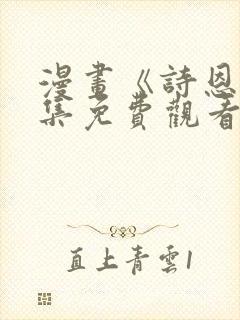 漫畫《詩恩
集免費觀看
直上青雲1